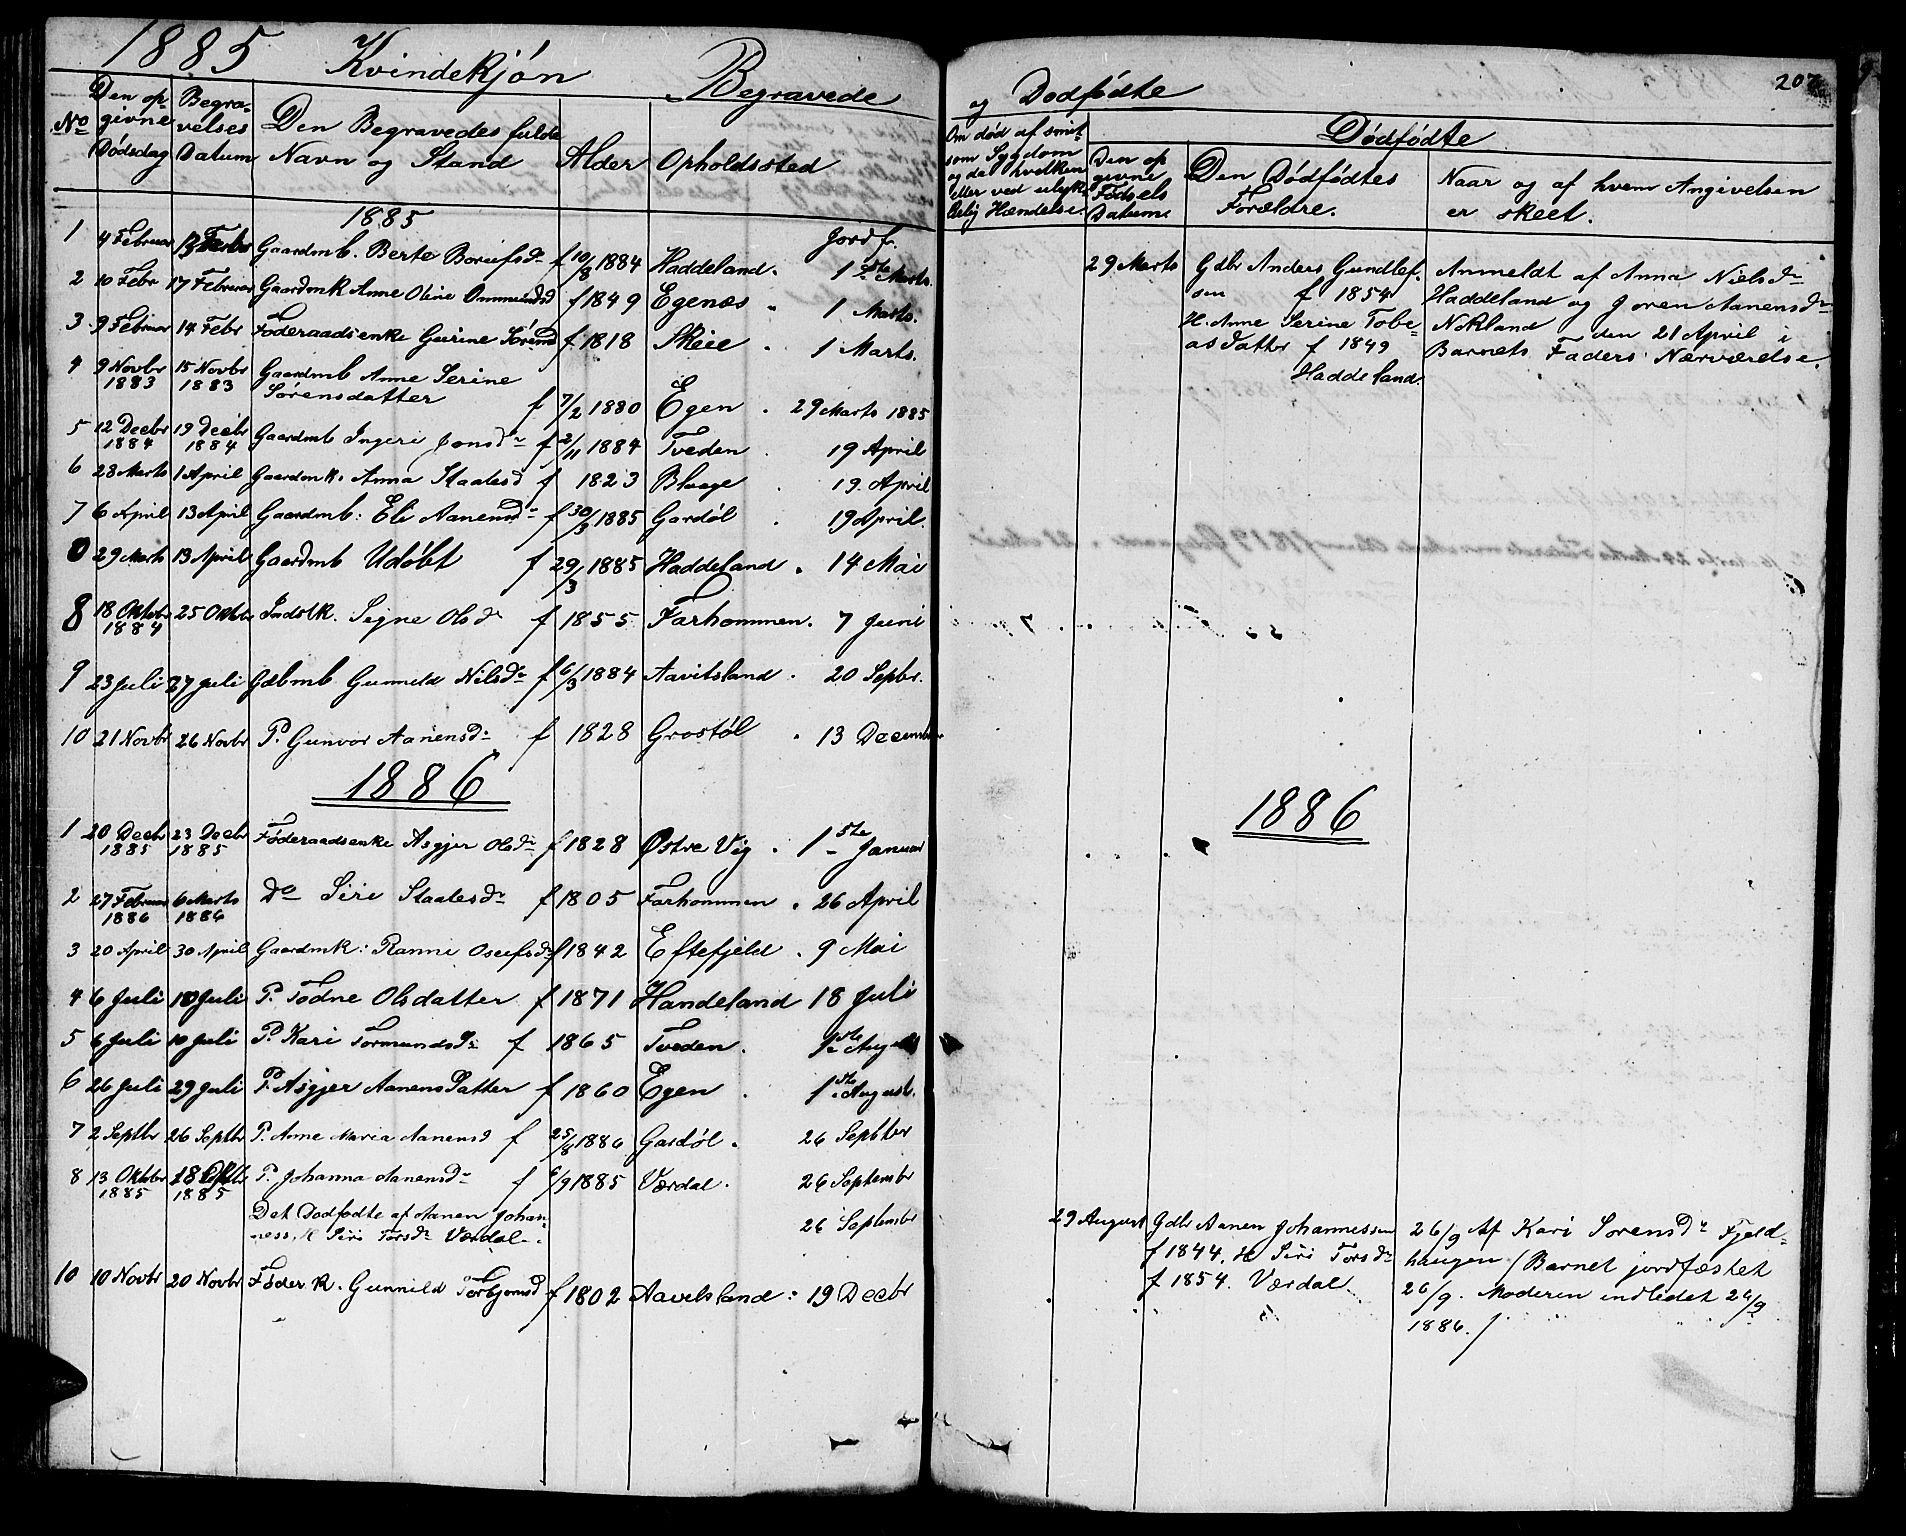 1885 Kvindekjøn Begravede
No
Den op-
givne
Dødsdag
Begra-
velses
Datum
Den Begravedes fulde
Navn og Stand
Alder
Opholdssted
1885
Jordf.
1 4 Februar 13 Febr Gaardmb. Berte f 10/8 1884 Haddeland. 1ste Marts.
2 10 Febr 17 Februar Gaardmk Anne Oline Ommundsd f 1849 Egenæs. 1 Marts.
3 9 Februar 14 Febr Føderaadsenke Gurine f 1818 Skeie. 1 Marts.
4 9 Novbr 15 Novbr Gaardmb Anne Serine
1883 1883 Sørensdatter f 7/2 1880 Egen. 29 Marts 1885
5 12 Decbr 19 Decbr Gaardmb Ingeri Jonsdr f 2/11 1884 Tveden. 19 April
1884 1884
6 23 Marts 1 April Gaardmk. Anna Staalesd f 1823 19. April
7 6 April 13 April Gaardmb: Eli Aanensdr f 30/3 1885 Gardøl. 19 April.
0 29 Marts 13 April Gaardmb Udøbt f 29/3 1885 Haddeland. 14 Mai
8 18 Oktobr 25 Oktbr Indstk. Signe Olsdr f 1855 Farhommen. 7 Juni
1884
9 23 Juli 27 Juli Gdbmb Gunneld Nilsdr f 6/3 1884 Aavitsland. 20 Septbr.
10 21 Novbr 26 Novbr P. Gunvor Aanensd: f 1828 Grostøl. 13 Decembr
1886
1 20 Decbr 23 Decbr Føderaadsenke Asgjer Olsdr f 1828 Østre Vig. 1ste Januar
1885 1885
2 27 Februar 6 Marts Do Siri Staalesdr f 1805 Farhommen. 26 April
1886 1886
3 20 April 30 April Gaardmk: Ranni Osefsdr f 1842 Eftefjeld. 9 Mai
4 6 Juli 10 Juli P. Todne Olsdatter f 1871 Handeland 18 Juli
5 6 Juli 10 Juli P. Kari Tormundsd: f 1865 Tveden. 1ste August
6 26 Juli 29 Juli P. Asgjer Aanensdatter f 1860 Egen. 1ste August.
7 2 Septbr 26 Septbr P. Anne Maria Aanensd f 25/8 1886 Gardøl. 26 Septber
8 13 Oktobr 18 P. Johanna Aanensdr f 6/9 1885 Værdal. 26 Septembr
1885 1885
Det Dødfødte af Aanen Johan-
ness. H Siri Torsdr Værdal. 26 Septembr
10 10 Novbr 20 Novbr Føder. k. Gunnild Torbjornsd f 1802 Aavitsland: 19 Decbr
og Dødfødte
207
Om død af smit-
som Sygdom
og da hvilken
eller ved ulyk-
kelig Hændelse.
Dødfødte
Den op
givne
Fødsels
Datum
Den Dødfødtes
Forældre.
Naar og af hvem Angivelsen
er skeet.
29 Marts Gdbr Anders Gundlef- Anmeldt af Anna Nielsdr
sen f 1854 Haddeland og Joren Aanensdr
H. Anne Serine Tobi- Nokland den 21 April i
asdatter f 1849 Barnets Faders Nærværelse.
Haddeland.
1886
29 August Gdbr Aanen Johannessen 26/9 Af Kari Sorensdr Fjeld-
f 1844. H Siri Torsdr haugen (Barnet jordfæstet
f 1854. Værdal 26/9. Moderen indledet 26/9
1886.)